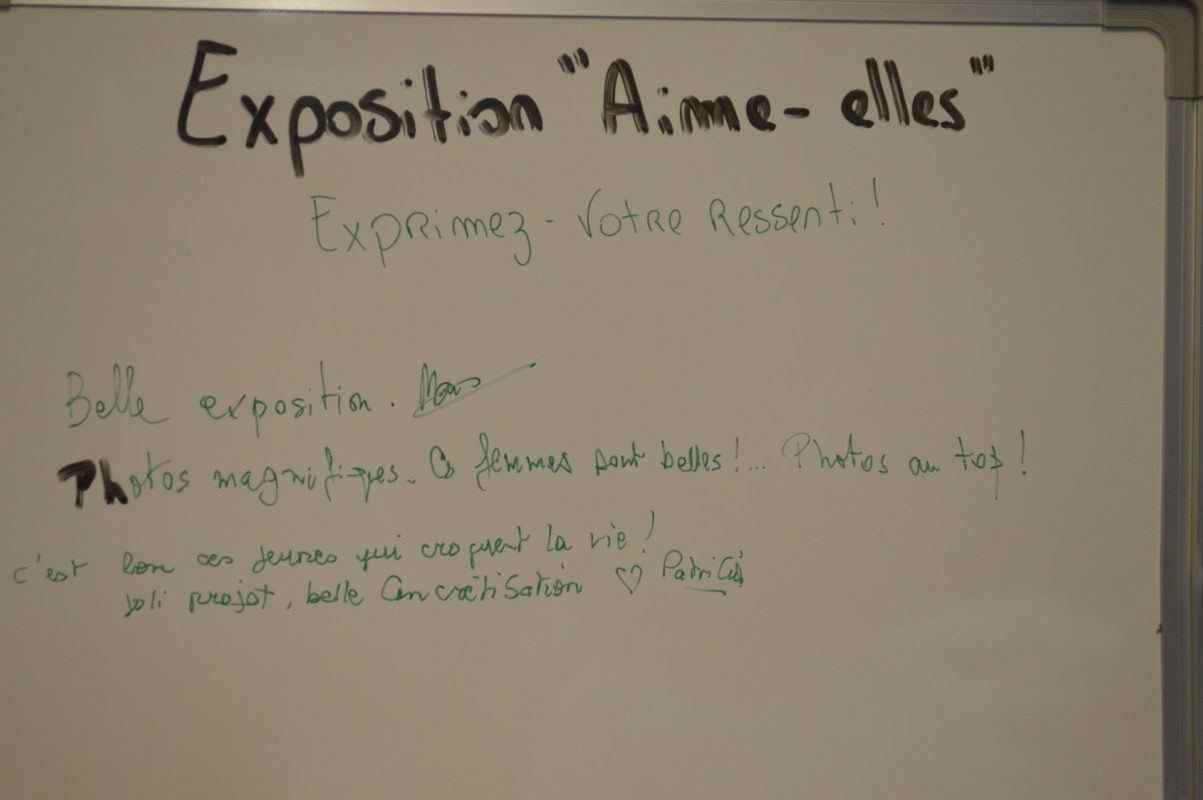 Exposition "Aime-elles"
Exprimez-Votre Ressenti!
Belle exposition.
Photos magnifiques. Ces femmes sont belles!... Photos au top!
c'est bon ces jeunes qui croquent la vie!
Joli projet, belle Concrétisation ♡ Patricia